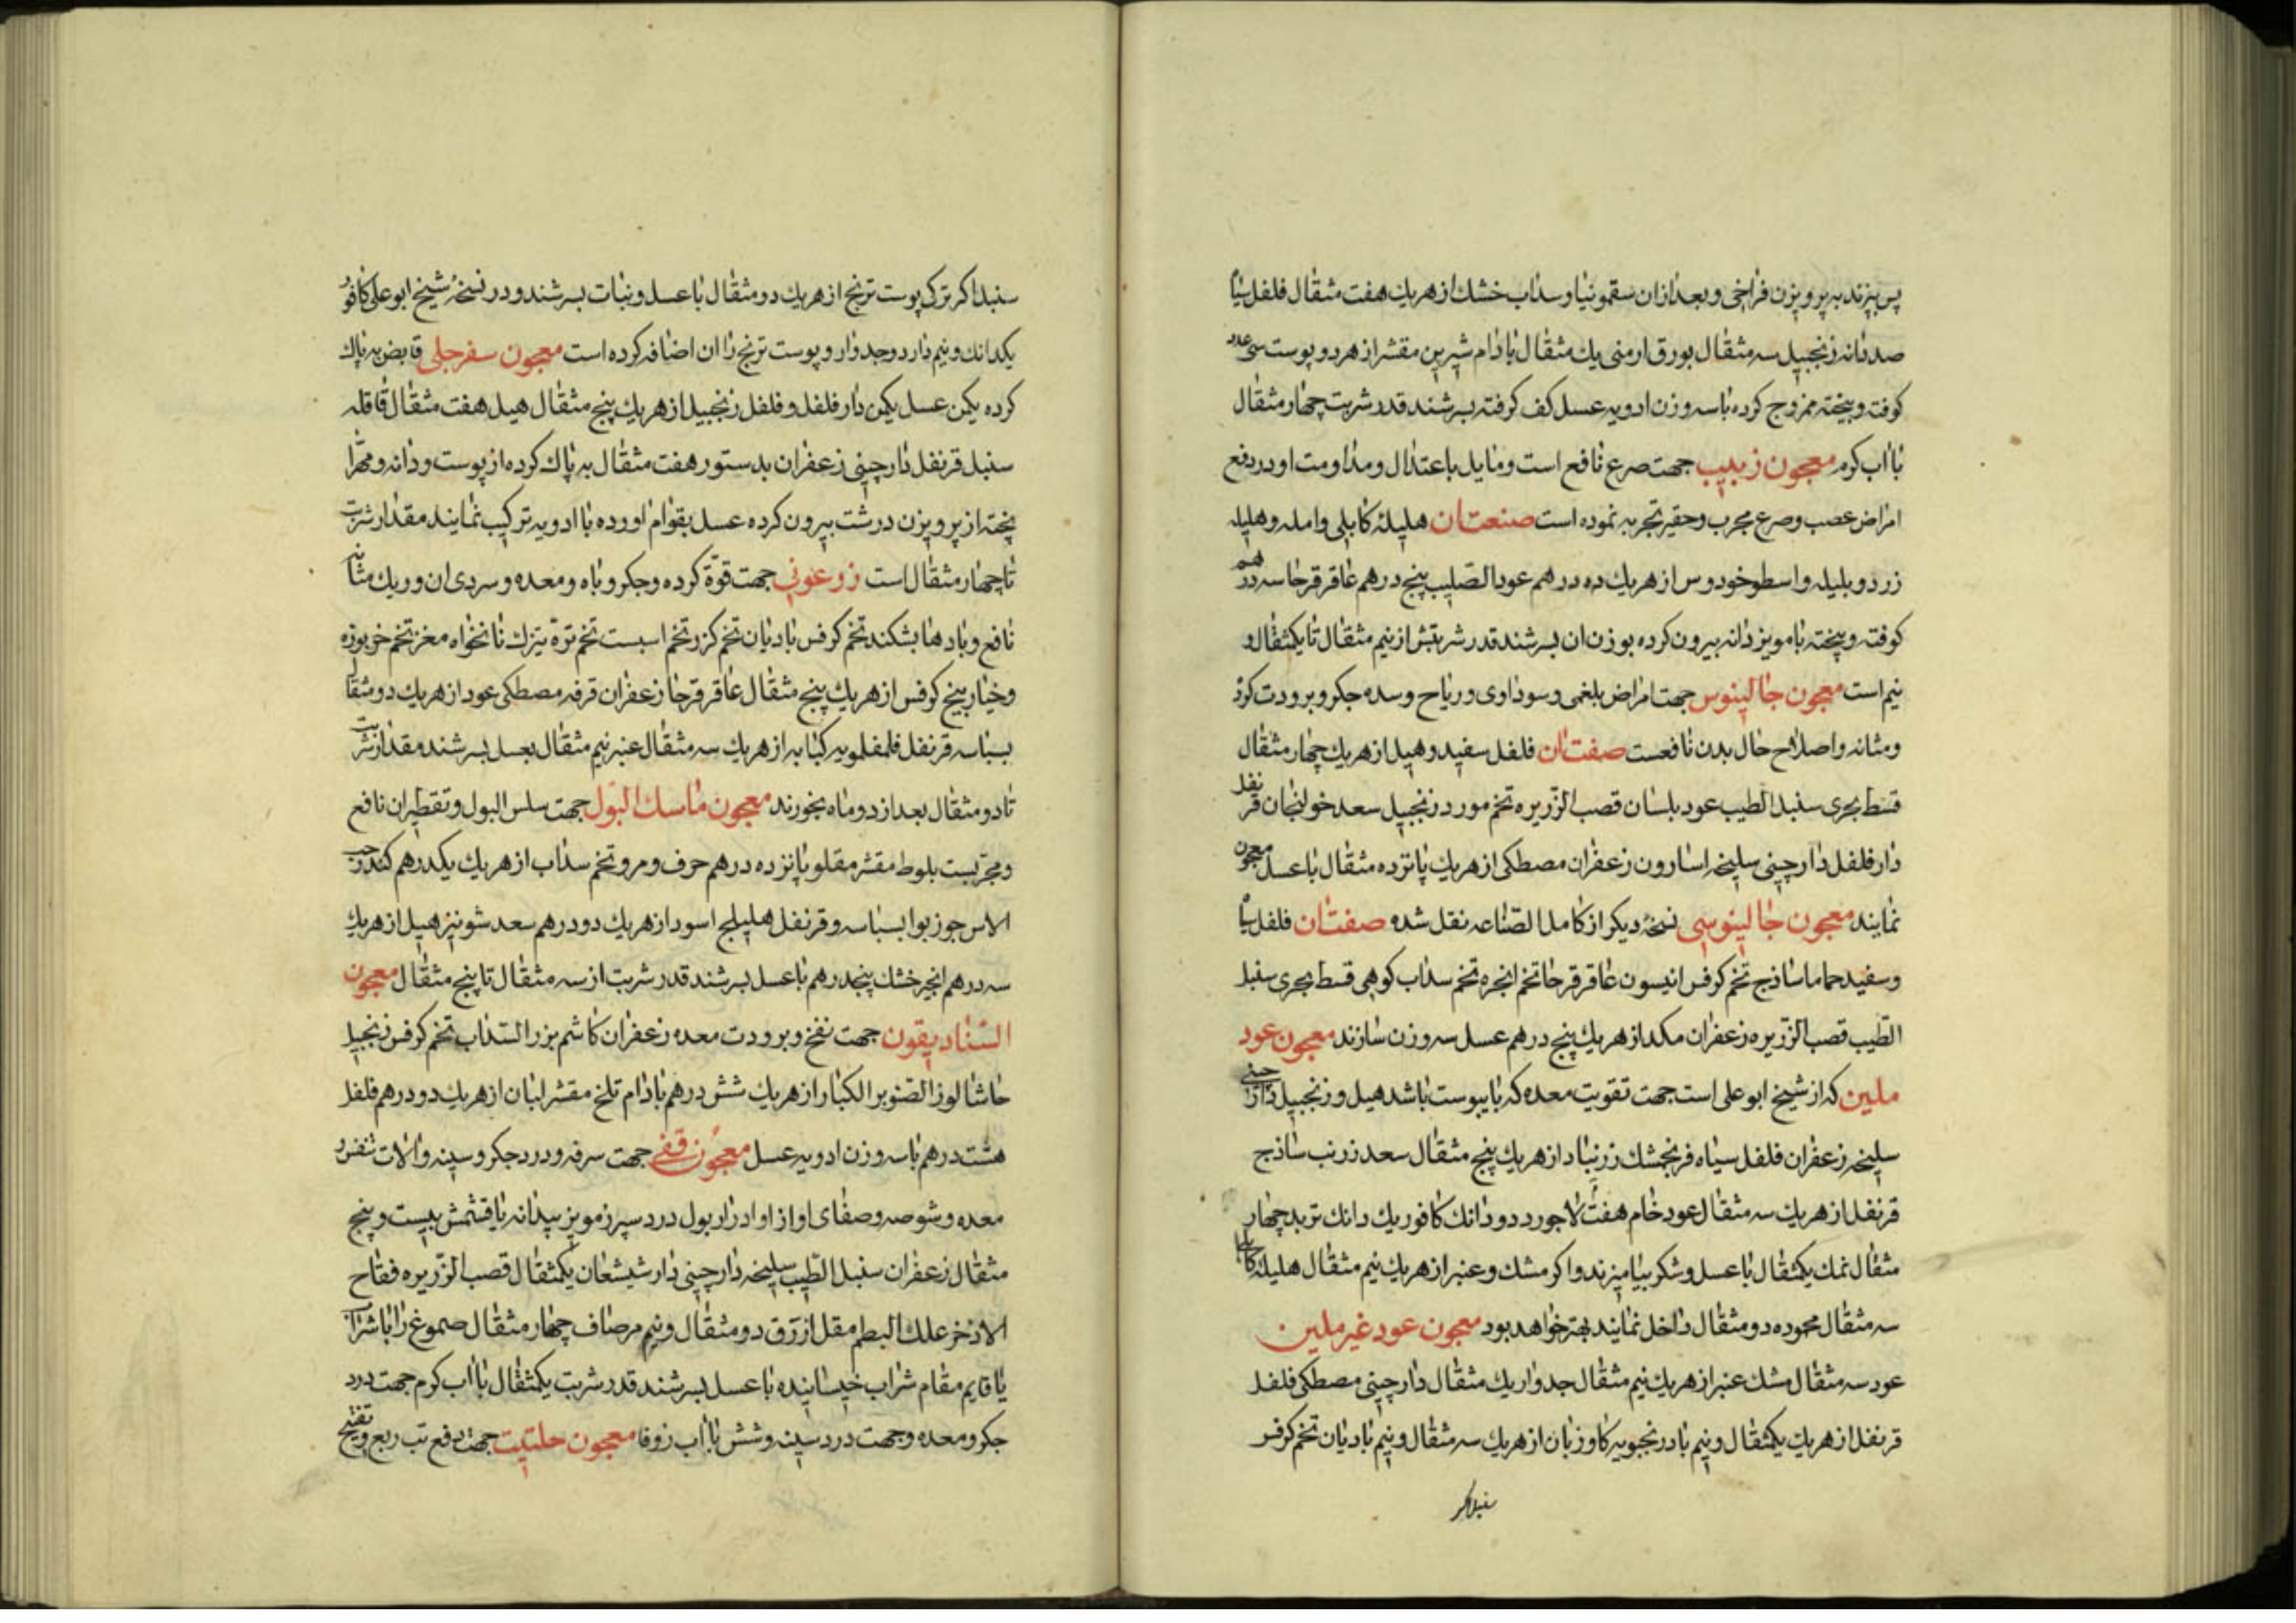 پس ببزند به پرویزن فراخی و بعد ازان سقمونیا و سداب خشک از هریک هفت مثقال فلفل سیاه
صد دانه زنجبیل سه مثقال بورق ارمنی یک مثقال بادام شیرین مقشر از هر دو پوست سی عدد
کوفته و بیخته ممزوج کرده با سه وزن ادویه عسل کف کرفته بسرشند قدر شربت چهار مثقال
با اب کرم معجون زبیب جهت صرع نافع است و مایل باعتدال و مداومت او در دفع
امراض عصب و صرع مجرب و حقیر تجربه نموده است صنعت ان هلیلهٔ کابلی و امله و هلیله
زرد و بلیله و اسطوخودوس از هریک ده درهم عود الصلیب پنج درهم عاقرقرحا سه درهم
کوفته و بیخته با مویز دانه بیرون کرده بوزن ان بسرشند قدر شربتش از نیم مثقال تا یکمثقال و
نیم است معجون جالینوس جهت امراض بلغمی و سوداوی و ریاح و سده جکر و برودت کرده
و مثانه و اصلاح حال بدن نافعست صفت ان فلفل سفید و هیل از هریک چهار مثقال
قسط بحری سنبل الطیب عود بلسان قصب الزریره تخم مورد زنجبیل سعد خولنجان قرنفل
دارفلفل دارچینی سلیخه اسارون زعفران مصطکی از هریک پانزده مثقال با عسل معجون
نمایند معجون جالینوسی نسخهٔ دیکر از کامل الصناعه نقل شده صفت ان فلفل سیاه
و سفید حماما ساذج تخم کرفس انیسون عاقرقرحا تخم انجره تخم سداب کوهی قسط بحری سنبل
الطیب قصب الزریره زعفران مکد از هریک پنج درهم عسل سه وزن سازند معجون عود
ملین که از شیخ ابوعلی است جهت تقویت معده که با یبوست باشد هیل و زنجبیل دارچینی
سلیخه زعفران فلفل سیاه فرنجمشک زرنباد از هریک پنج مثقال سعد زرنب ساذج
قرنفل از هریک سه مثقال عود خام هفت لاجورد دو دانک کافور یک دانک تربد چهار
مثقال نمک یکمثقال با عسل و شکر بیامیزند و اکر مشک و عنبر از هریک نیم مثقال هلیلهٔ کابلی
سه مثقال محموده دو مثقال داخل نمایند بهتر خواهد بود معجون عود غیر ملین
عود سه مثقال مشک عنبر از هریک نیم مثقال جدوار یک مثقال دارچینی مصطکی فلفل
قرنفل از هریک یکمثقال و نیم بادرنجبویه کاوزبان از هریک سه مثقال و نیم بادیان تخم کرفس
سنبل اکر
سنبل اکر ترکی پوست ترنج از هریک دو مثقال با عسل و نبات بسرشند و در نسخهٔ شیخ ابوعلی کافور
یکدانک و نیم دارد و جدوار و پوست ترنج را ان اضافه کرده است معجون سفرجلی قابض به پاک
کرده یکمن عسل یکمن دارفلفل و فلفل زنجبیل از هریک پنج مثقال هیل هفت مثقال قاقله
سنبل قرنفل دارچینی زعفران بدستور هفت مثقال به پاک کرده از پوست و دانه و مهرا
پخته از پرویزن درشت بیرون کرده عسل بقوام اورده با ادویه ترکیب نمایند مقدار شربت
تا چهار مثقال است زرعونی جهت قوّة کرده و جکر و باه و معده و سردی ان و ریک مثانه
نافع و بادها بشکند تخم کرفس بادیان تخم کزر تخم اسبست تخم ترهٔ تیزک نانخواه مغز تخم خربوزه
و خیار بیخ کرفس از هریک پنج مثقال عاقرقرحا زعفران قرفه مصطکی عود از هریک دو مثقال
بسباسه قرنفل فلفلمویه کبابه از هریک سه مثقال عنبر نیم مثقال بعسل بسرشند مقدار شربت
تا دو مثقال بعد از دو ماه بخورند معجون ماسک البول جهت سلس البول و تقطیر ان نافع
و مجربست بلوط مقشر مقلو پانزده درهم حرف و مرو تخم سداب از هریک یکدرهم کندر حب
الاس جوزبوا بسباسه و قرنفل هلیلج اسود از هریک دو درهم سعد شونیز هیل از هریک
سه درهم انجیر خشک پنجدرهم با عسل بسرشند قدر شربت از سه مثقال تا پنج مثقال معجون
السنادیقون جهت نفخ و برودت معده زعفران کاشم بزر السداب تخم کرفس زنجبیل
حاشا لوز الصنوبر الکبار از هریک شش درهم بادام تلخ مقشر لبان از هریک دو درهم فلفل
هشت درهم با سه وزن ادویه عسل معجون قفی جهت سرفه و درد جکر و سینه و الات تنفس و
معده و شوصه و صفای اواز و ادرار بول درد سپرز مویز بیدانه یا قشمش بیست و پنج
مثقال زعفران سنبل الطیب سلیخه دارچینی دارشیشعان یکمثقال قصب الزریره فقاح
الاذخر علک البطم مقل ازرق دو مثقال و نیم مر صاف چهار مثقال صموغ را با شراب
یا قایم مقام شراب خیسانیده با عسل بسرشند قدر شربت یکمثقال با اب کرم جهت درد
جکر و معده و جهت درد سینه و شش با اب زوفا معجون حلتیت جهت دفع تب ربع و تفتیح